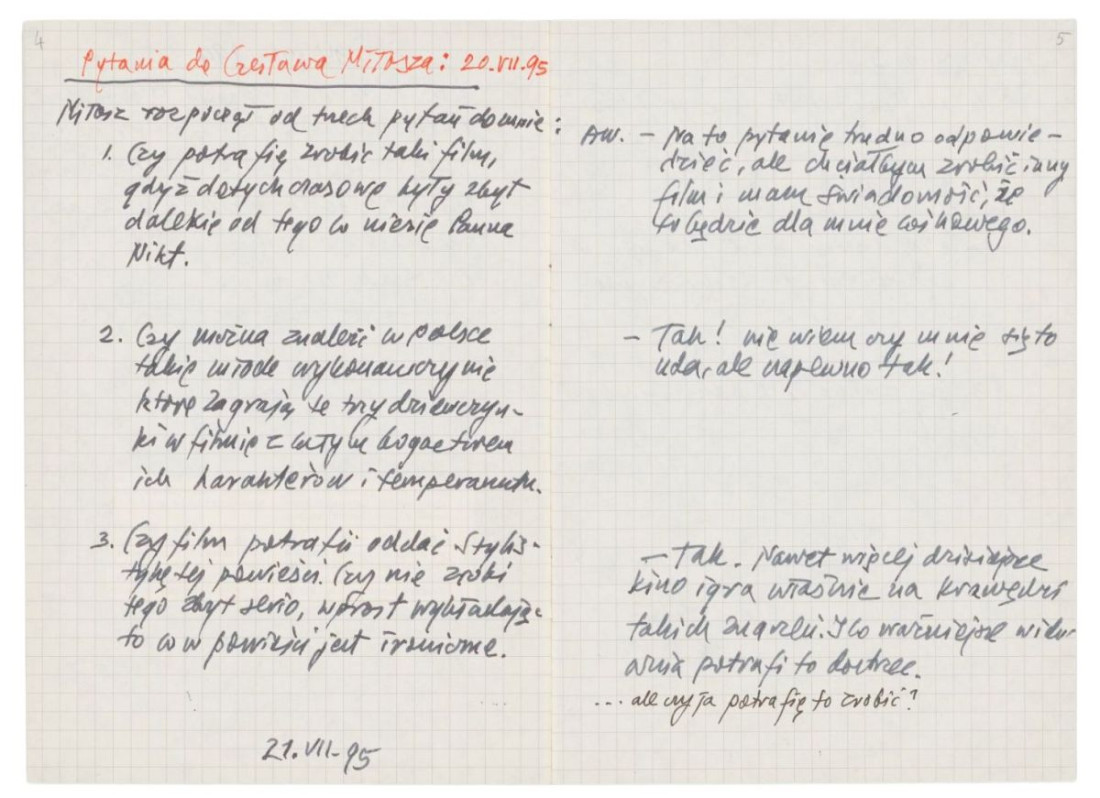 4
Pytania do Czesława Miłosza: 20.VII.95
Miłosz rozpoczął od trzech pytań do mnie:
1. Czy potrafię zrobić taki film,
gdyż dotychczasowe były zbyt
dalekie od tego co niesie Panna
Nikt.
2. Czy można znaleźć w Polsce
takie młode wykonawczynie
które zagrają te trzy dziewczyn-
ki w filmie z całym bogactwem
ich charakterów i temperament.
3. Czy film potrafi oddać stylis-
tykę tej powieści. Czy nie zrobi
tego zbyt serio, wprost wykładając
to co w powieści jest ironiczne.
21.VII-95
5
AW. - Na to pytanie trudno odpowie-
dzieć, ale chciałbym zrobić inny
film i mam świadomość, że
to będzie dla mnie coś nowego.
- Tak! nie wiem czy mnie się to
uda, ale napewno tak!
- Tak. Nawet więcej dzisiejsze
kino igra właśnie na krawędzi
takich znaczeń. I co ważniejsze widow
ownia potrafi to dostrzec.
... ale czy ja potrafię to zrobić?